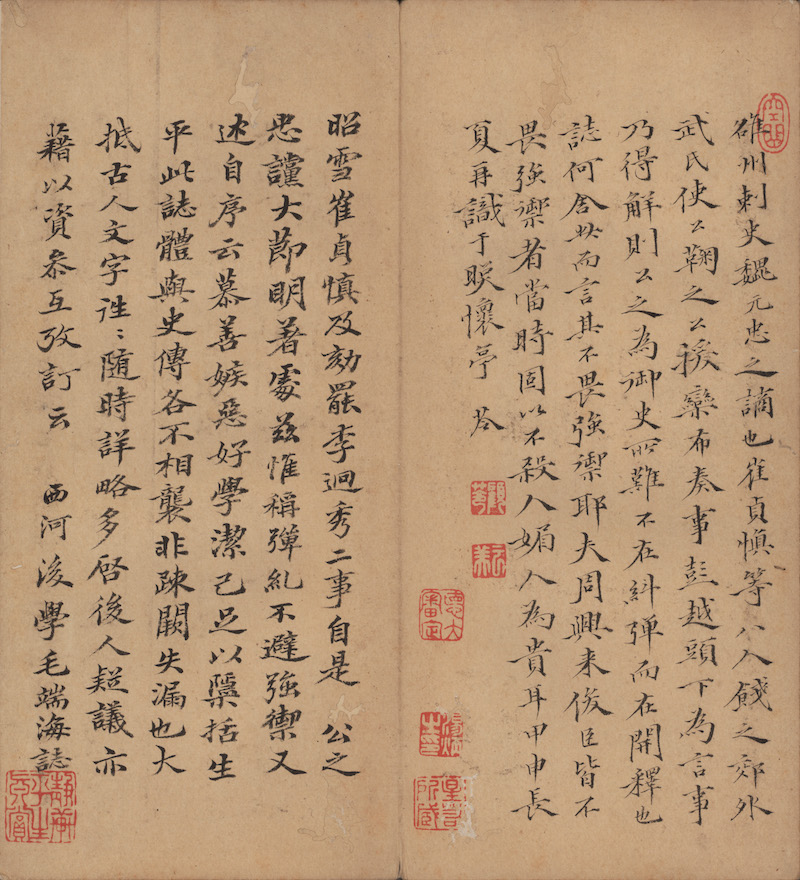 雒州刺史魏元忠之謫也崔貞慎等八人餞之郊外
武氏使公鞫之公援欒布奏事彭越頭下為言事
乃得解則公之為御史所難不在糾彈而在開釋也
誌何舍此而言其不畏強禦耶夫周興来俊臣皆不
畏強禦者當時固以不殺人媚人為貴耳甲申長
夏再識于懷亭 苓
昭雪崔貞慎及劾罷李迥秀二事自是 公之
忠讜大節明著處茲惟稱彈糺不避強禦又
述自序云慕善嫉惡好學潔己足以檃括生
平此誌體與史傳各不相襲非疎闕失漏也大
抵古人文字往〻隨時詳略多啓後人疑議亦
藉以資叅互攷訂云 西河後學毛端海誌